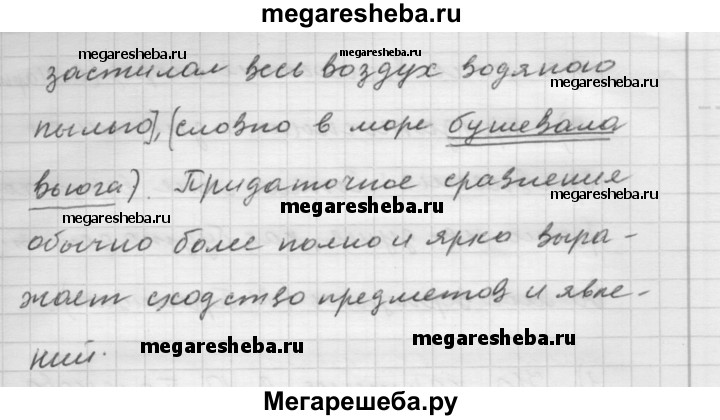 megaresheba.ru
megaresheba.ru megaresheba.ru megaresheba.ru
застилал весь воздух водяною
пылью], (словно в море бушевала
вьюга). Придаточное сравнения
megaresheba.ru megaresheba.ru megaresheba.ru
обычно более полно и ярко выра-
жает сходство предметов и явле-
ний.
megaresheba.ru megaresheba.ru megaresheba.ru
Мегарешеба.ру